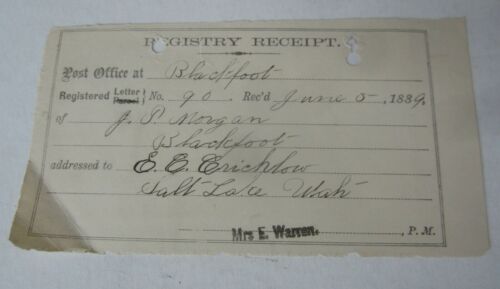 REGISTRY RECEIPT.
Post Office at Blackfoot
Registered Letter Parcel No. 90. Rec'd June 5, 1889.
of J. P. Morgan
Blackfoot
addressed to E. E. Crichlow
Salt Lake Utah
Mrs E. Warren. , P. M.